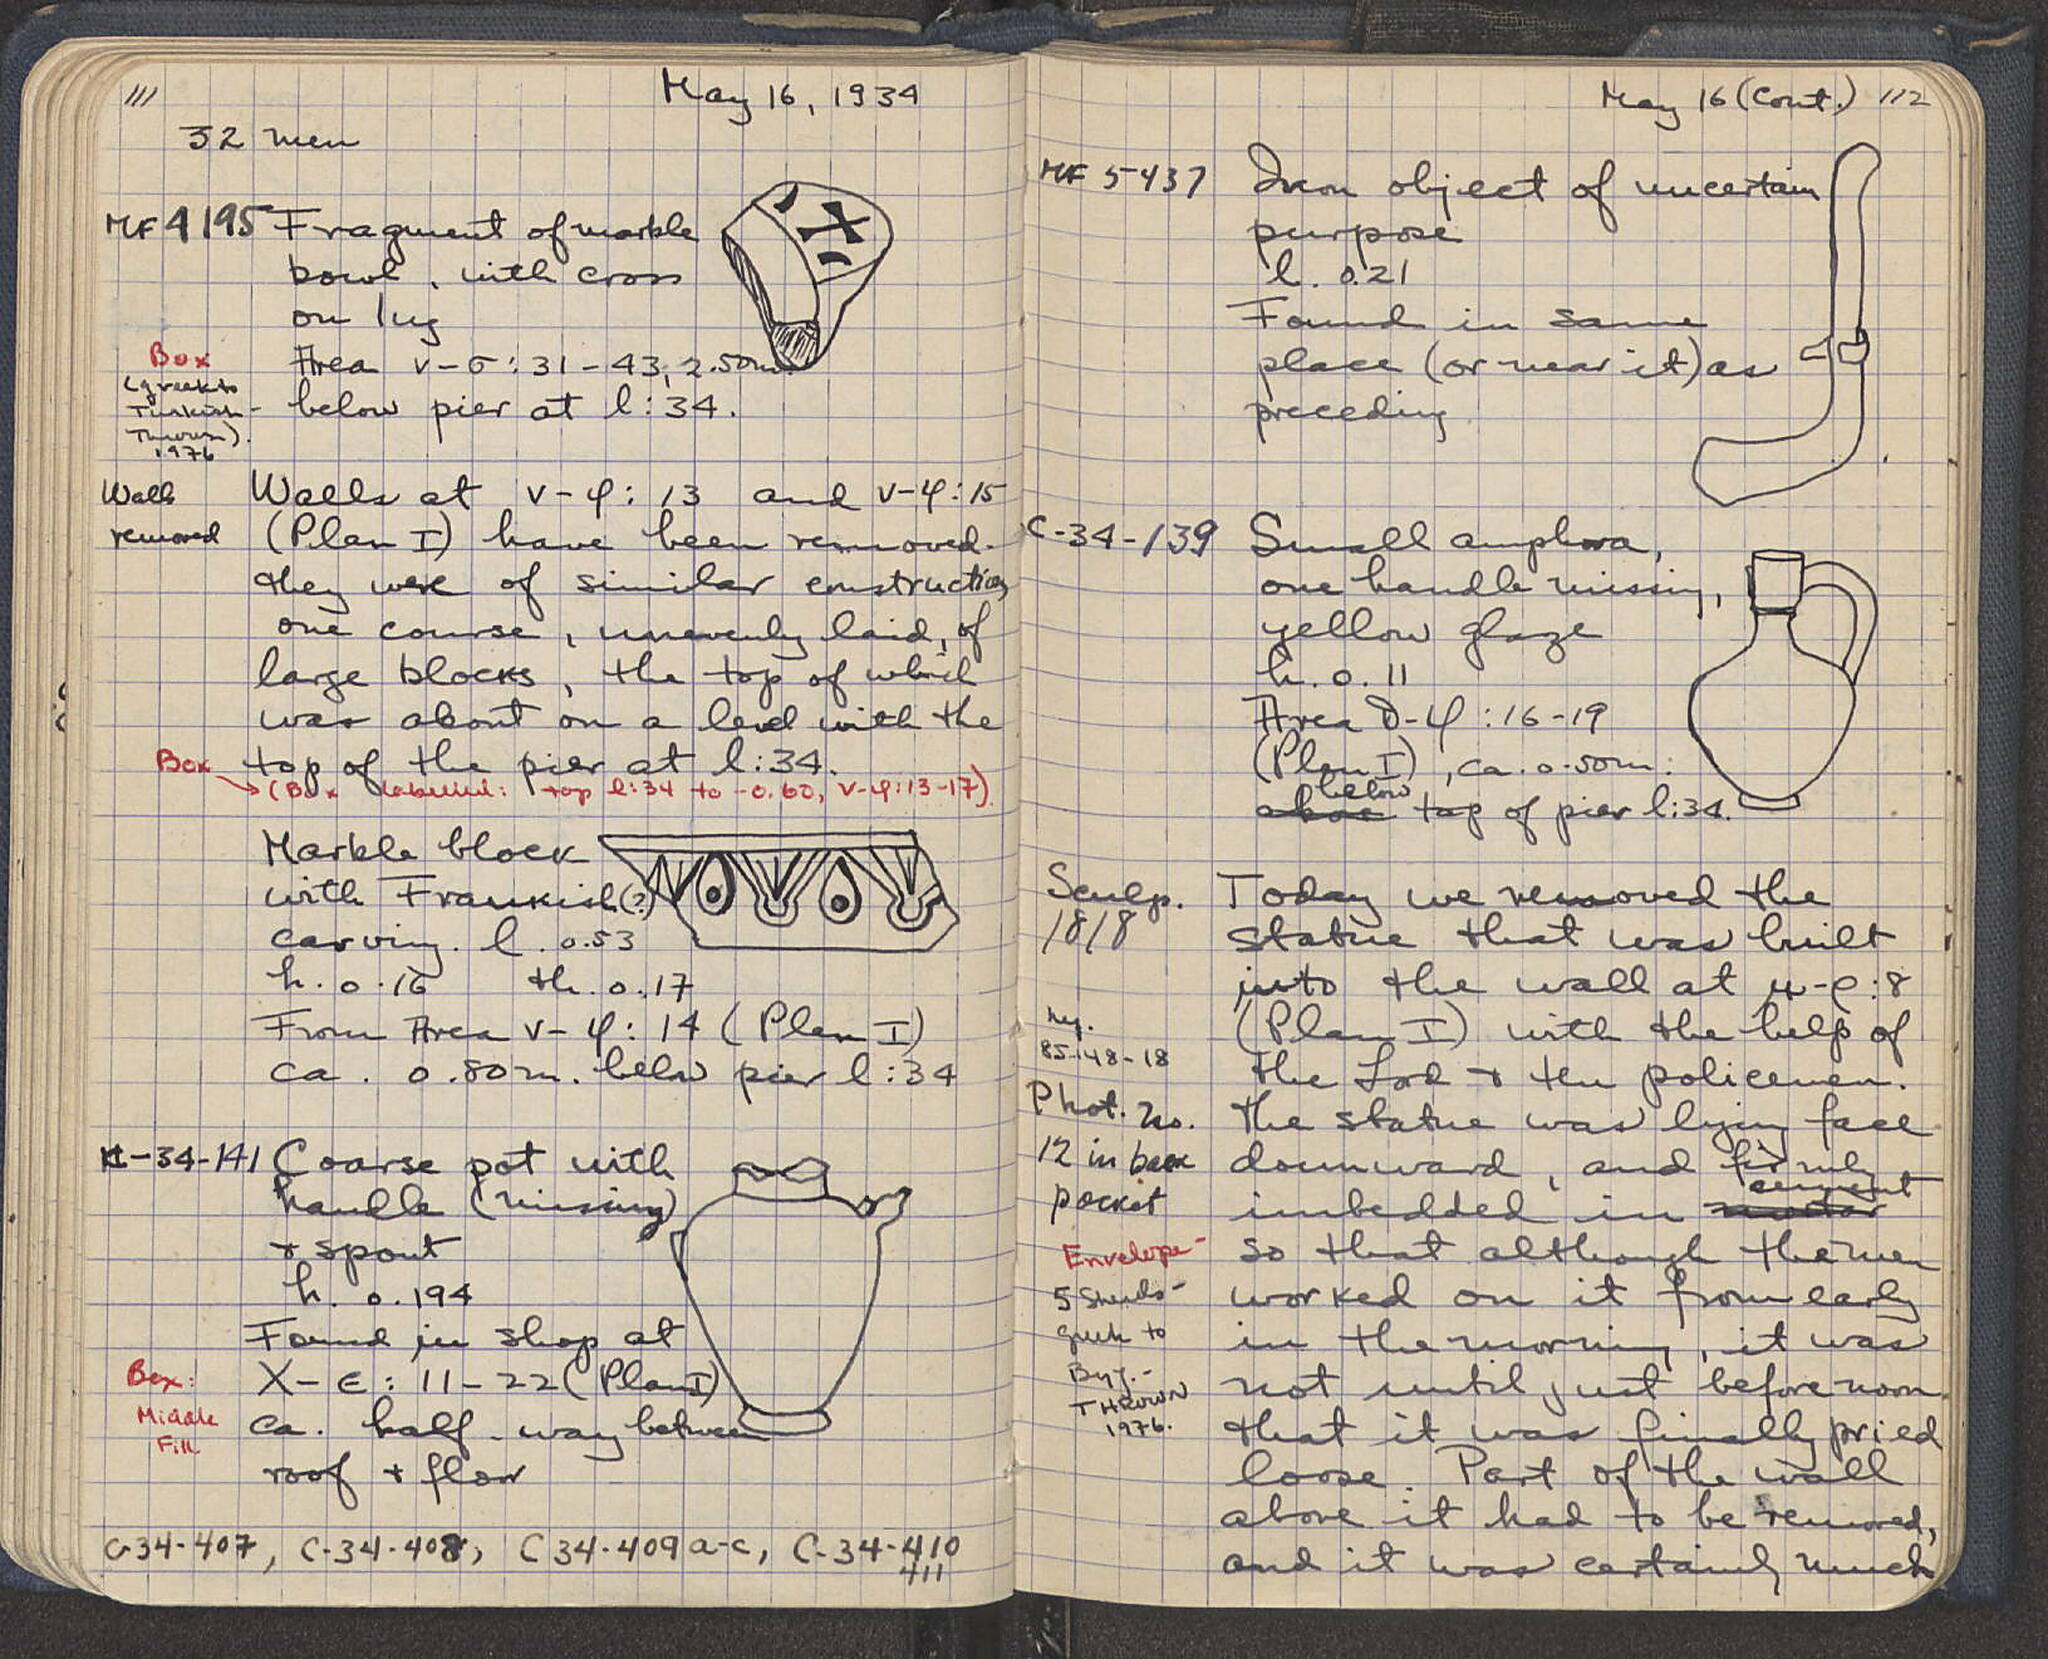 111
May 16, 1934
32 men
MF 4195 Fragment of marble
bowl, with cross
on lug
Area ν-σ: 31-43, 2.50m.
below pier at l:34.
Box
(greek to
Turkish-
Thrown).
1976
Walls
removed
Walls at ν-φ: 13 and ν-φ:15
(Plan I) have been removed.
they were of similar construction
one course, unevenly laid, of
large blocks, the top of which
was about on a level with the
top of the pier at l:34.
Box
(Box labelled: top l:34 to -0.60, ν-φ:13-17)
Marble block
with Frankish(?)
carving. l. 0.53
h. 0.16 th. 0.17
From Area ν-φ: 14 (Plan I)
ca. 0.80m. below pier l:34
C-34-141 Coarse pot with
handle (missing)
+ spout
h. 0.194
Found in shop at
X-E: 11-22 (Plan I)
ca. half-way between
roof + floor
Box:
Middle
Fill
C-34-407, C-34-408, C 34-409 a-c, C-34-410
411
May 16 (Cont.) 112
MF 5437 Iron object of uncertain
purpose
l. 0.21
Found in same
place (or near it) as
preceding
C-34-139 Small amphora,
one handle missing,
yellow glaze
h. 0.11
Area -φ: 16-19
(Plan I), ca. 0.50m.
below
above top of pier l:34.
Sculp.
1818
Today we removed the
statue that was built
into the wall at μ-ρ:8
(Plan I) with the help of
the Lord + the policemen.
The statue was lying face
downward, and firmly
cement
imbedded in mortar
so that although the men
worked on it from early
in the morning, it was
not until just before noon
that it was finally pried
loose. Part of the wall
above it had to be removed,
and it was certainly much
neg.
85-148-18
Phot. no.
12 in back
pocket
Envelope-
5 sherds-
greek to
Byz.-
THROWN
1976.